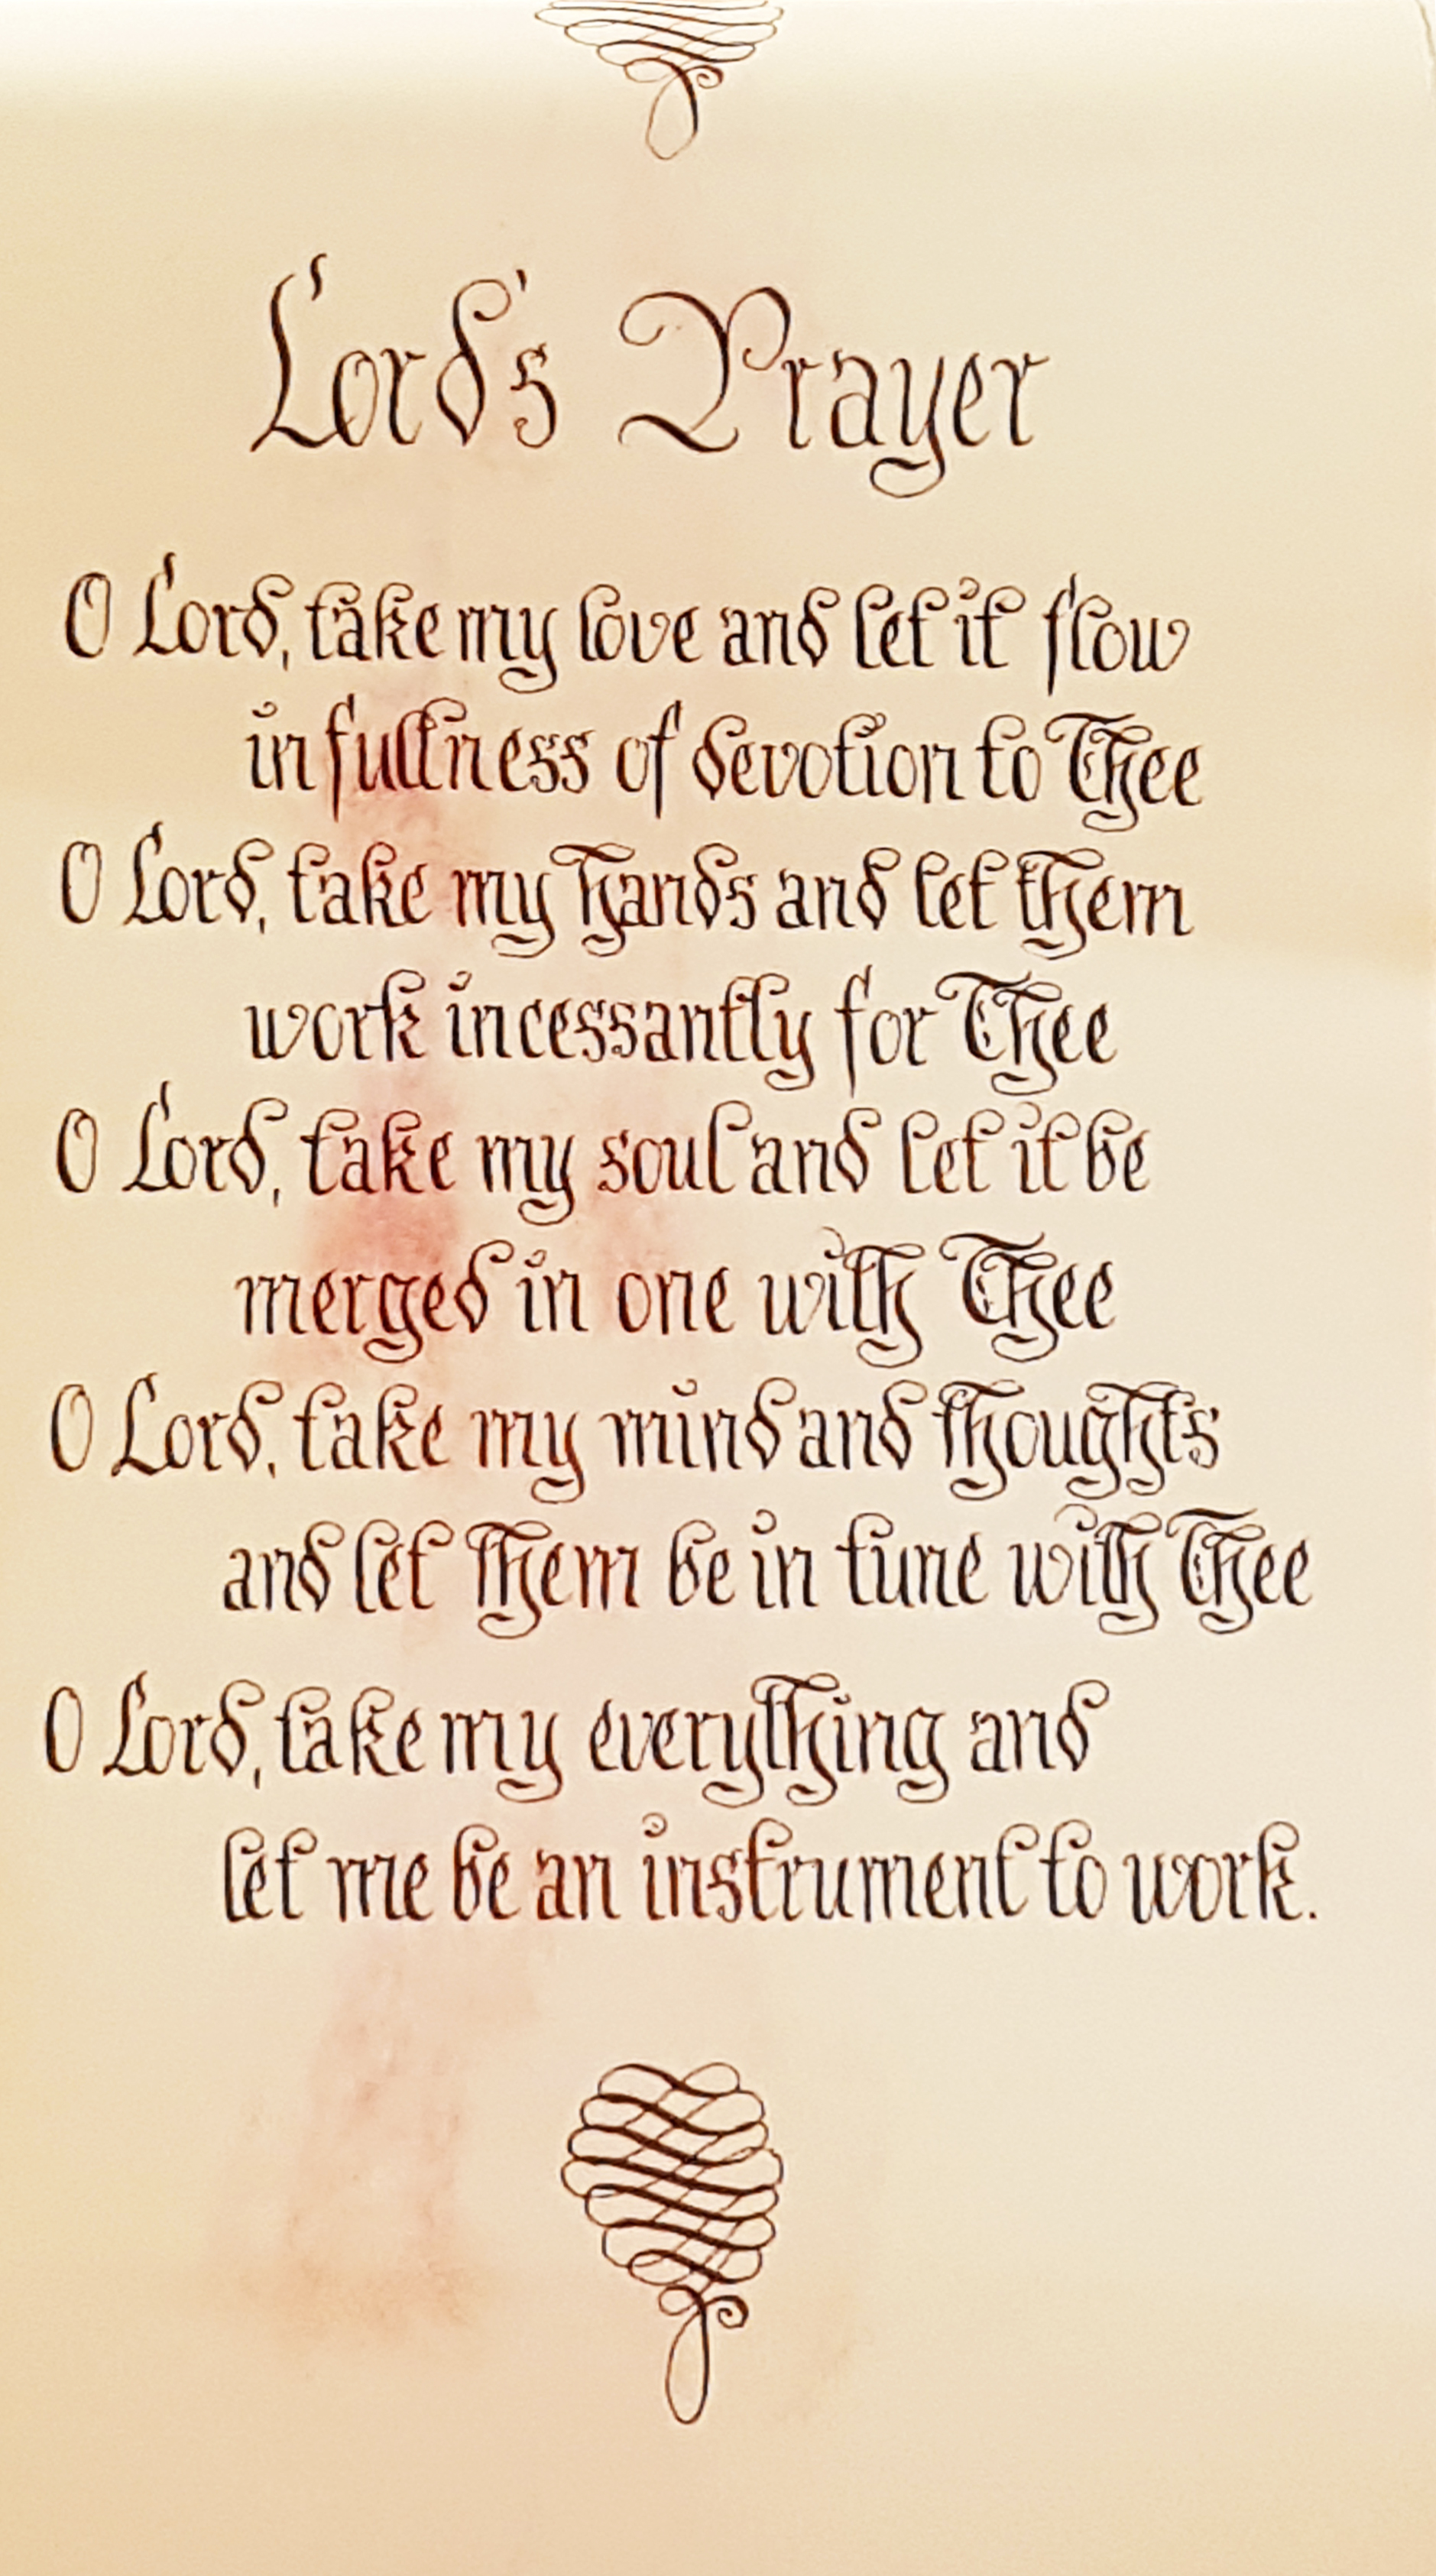 Lord's Prayer
O Lord, take my love and let it flow
in fullness of devotion to Thee
O Lord, take my hands and let them
work incessantly for Thee
O Lord, take my soul and let it be
merged in one with Thee
O Lord, take my mind and thoughts
and let them be in tune with Thee
O Lord, take my everything and
let me be an instrument to work.